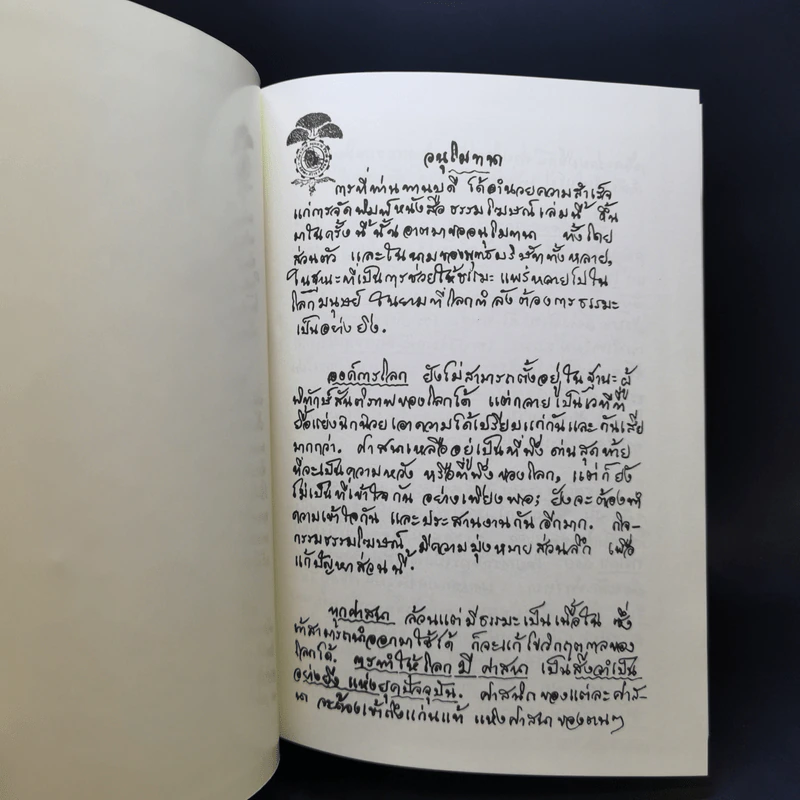 อนุโมทนา
การที่ท่านทานบดี ได้อำนวยความสำเร็จ
แก่การจัดพิมพ์หนังสือ ธรรมโฆษณ์ เล่มนี้ ขึ้น
มาในครั้งนี้ นั้น อาตมาขออนุโมทนา ทั้งโดย
ส่วนตัว และในนามของพุทธบริษัททั้งหลาย,
ในฐานะที่เป็นการช่วยให้ธรรมะ แพร่หลายไปใน
โลกมนุษย์ ในยามที่โลกกำลังต้องการธรรมะ
เป็นอย่างยิ่ง.
องค์การโลก ยังไม่สามารถตั้งอยู่ในฐานะผู้
พิทักษ์สันติภาพของโลกได้ แต่กลายเป็นเวทีที่
ยื้อแย่งฉกฉวยเอาความได้เปรียบแก่กันและกันเสีย
มากกว่า. ศาสนาเหลืออยู่เป็นที่พึ่ง ด่านสุดท้าย
ที่จะเป็นความหวัง หรือที่พึ่งของโลก, แต่ก็ยัง
ไม่เป็นที่เข้าใจกัน อย่างเพียงพอ; ยังจะต้องทำ
ความเข้าใจกัน และประสานงานกันอีกมาก. กิจ-
กรรมธรรมโฆษณ์ มีความมุ่งหมายส่วนลึก เพื่อ
แก้ปัญหาส่วนนี้.
ทุกศาสนา ล้วนแต่มีธรรมะเป็นเนื้อใน ซึ่ง
ถ้าสามารถนำออกมาใช้ได้ ก็จะแก้ไขวิกฤตกาลของ
โลกได้. การทำให้โลกมีศาสนา เป็นสิ่งจำเป็น
อย่างยิ่ง แห่งยุคปัจจุบัน. ศาสนิกของแต่ละศาส-
นา จะต้องเข้าถึงแก่นแท้ แห่งศาสนาของตนๆ